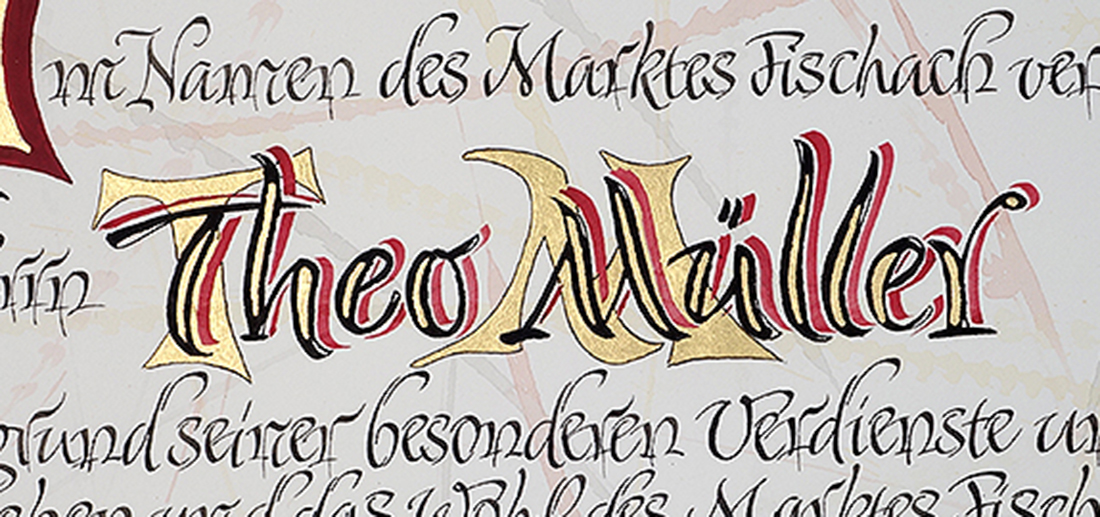 m Namen des Marktes Fischach ver
rrn
Theo Müller
grund seiner besonderen Verdienste un
eben und das Wohl des Marktes Fisch